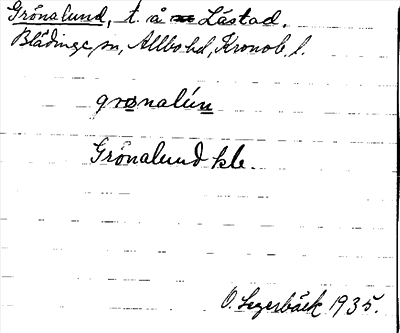 Grönalund, t. å Låstad.
Blädinge sn, Allbo hd, Kronob. l.
grønalún
Grönalund kle.
O. Segerbäck 1935.